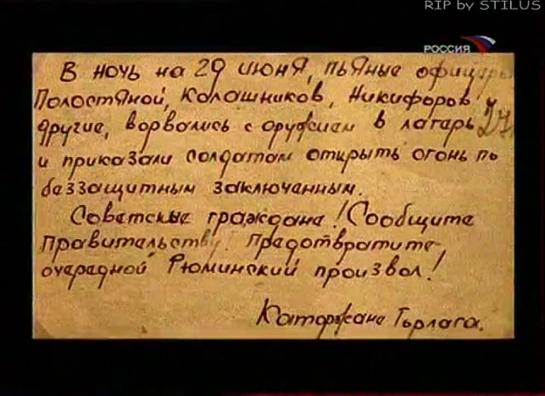 RIP by STILUS
РОССИЯ
В ночь на 29 июня, пьяные офицеры
Полостяной, Калашников, Никифоров и
другие, ворвались с оружием в лагерь
и приказали солдатам открыть огонь по
беззащитным заключенным.
Советские граждане! Сообщите
правительству! Предотвратите
очередной Рюминский произвол!
Каторжане Горлага.